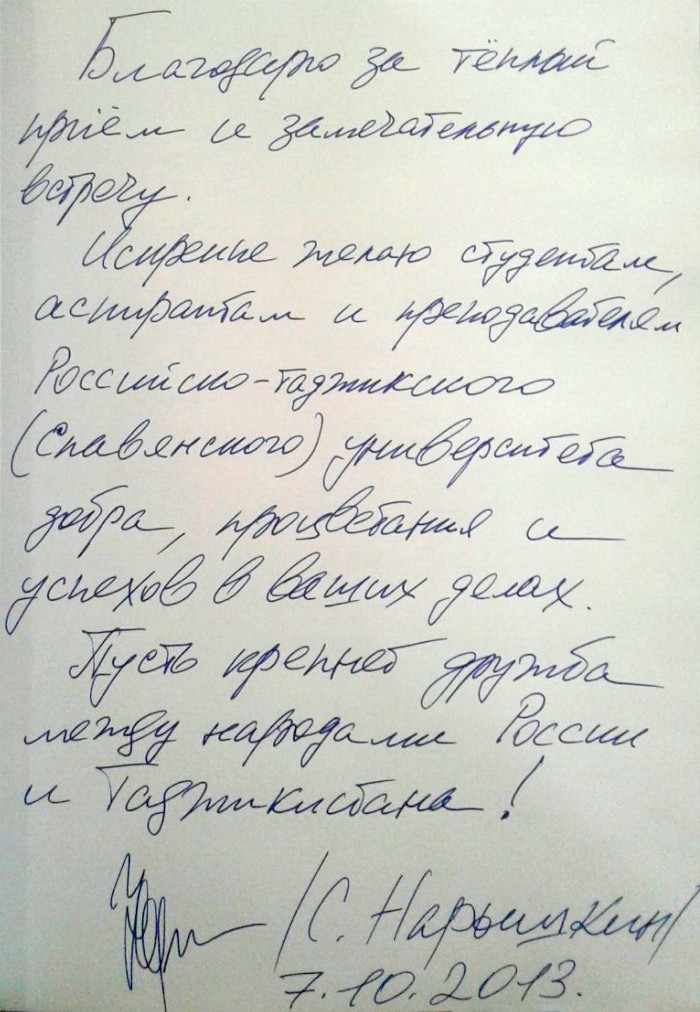 Благодарю за тёплый
приём и замечательную
встречу.
Искренне желаю студентам,
аспирантам и преподавателям
Российско-Таджикского
(Славянского) университета
добра, процветания и
успехов в ваших делах.
Пусть крепнет дружба
между народами России
и Таджикистана!
/С. Нарышкин/
7.10.2013.